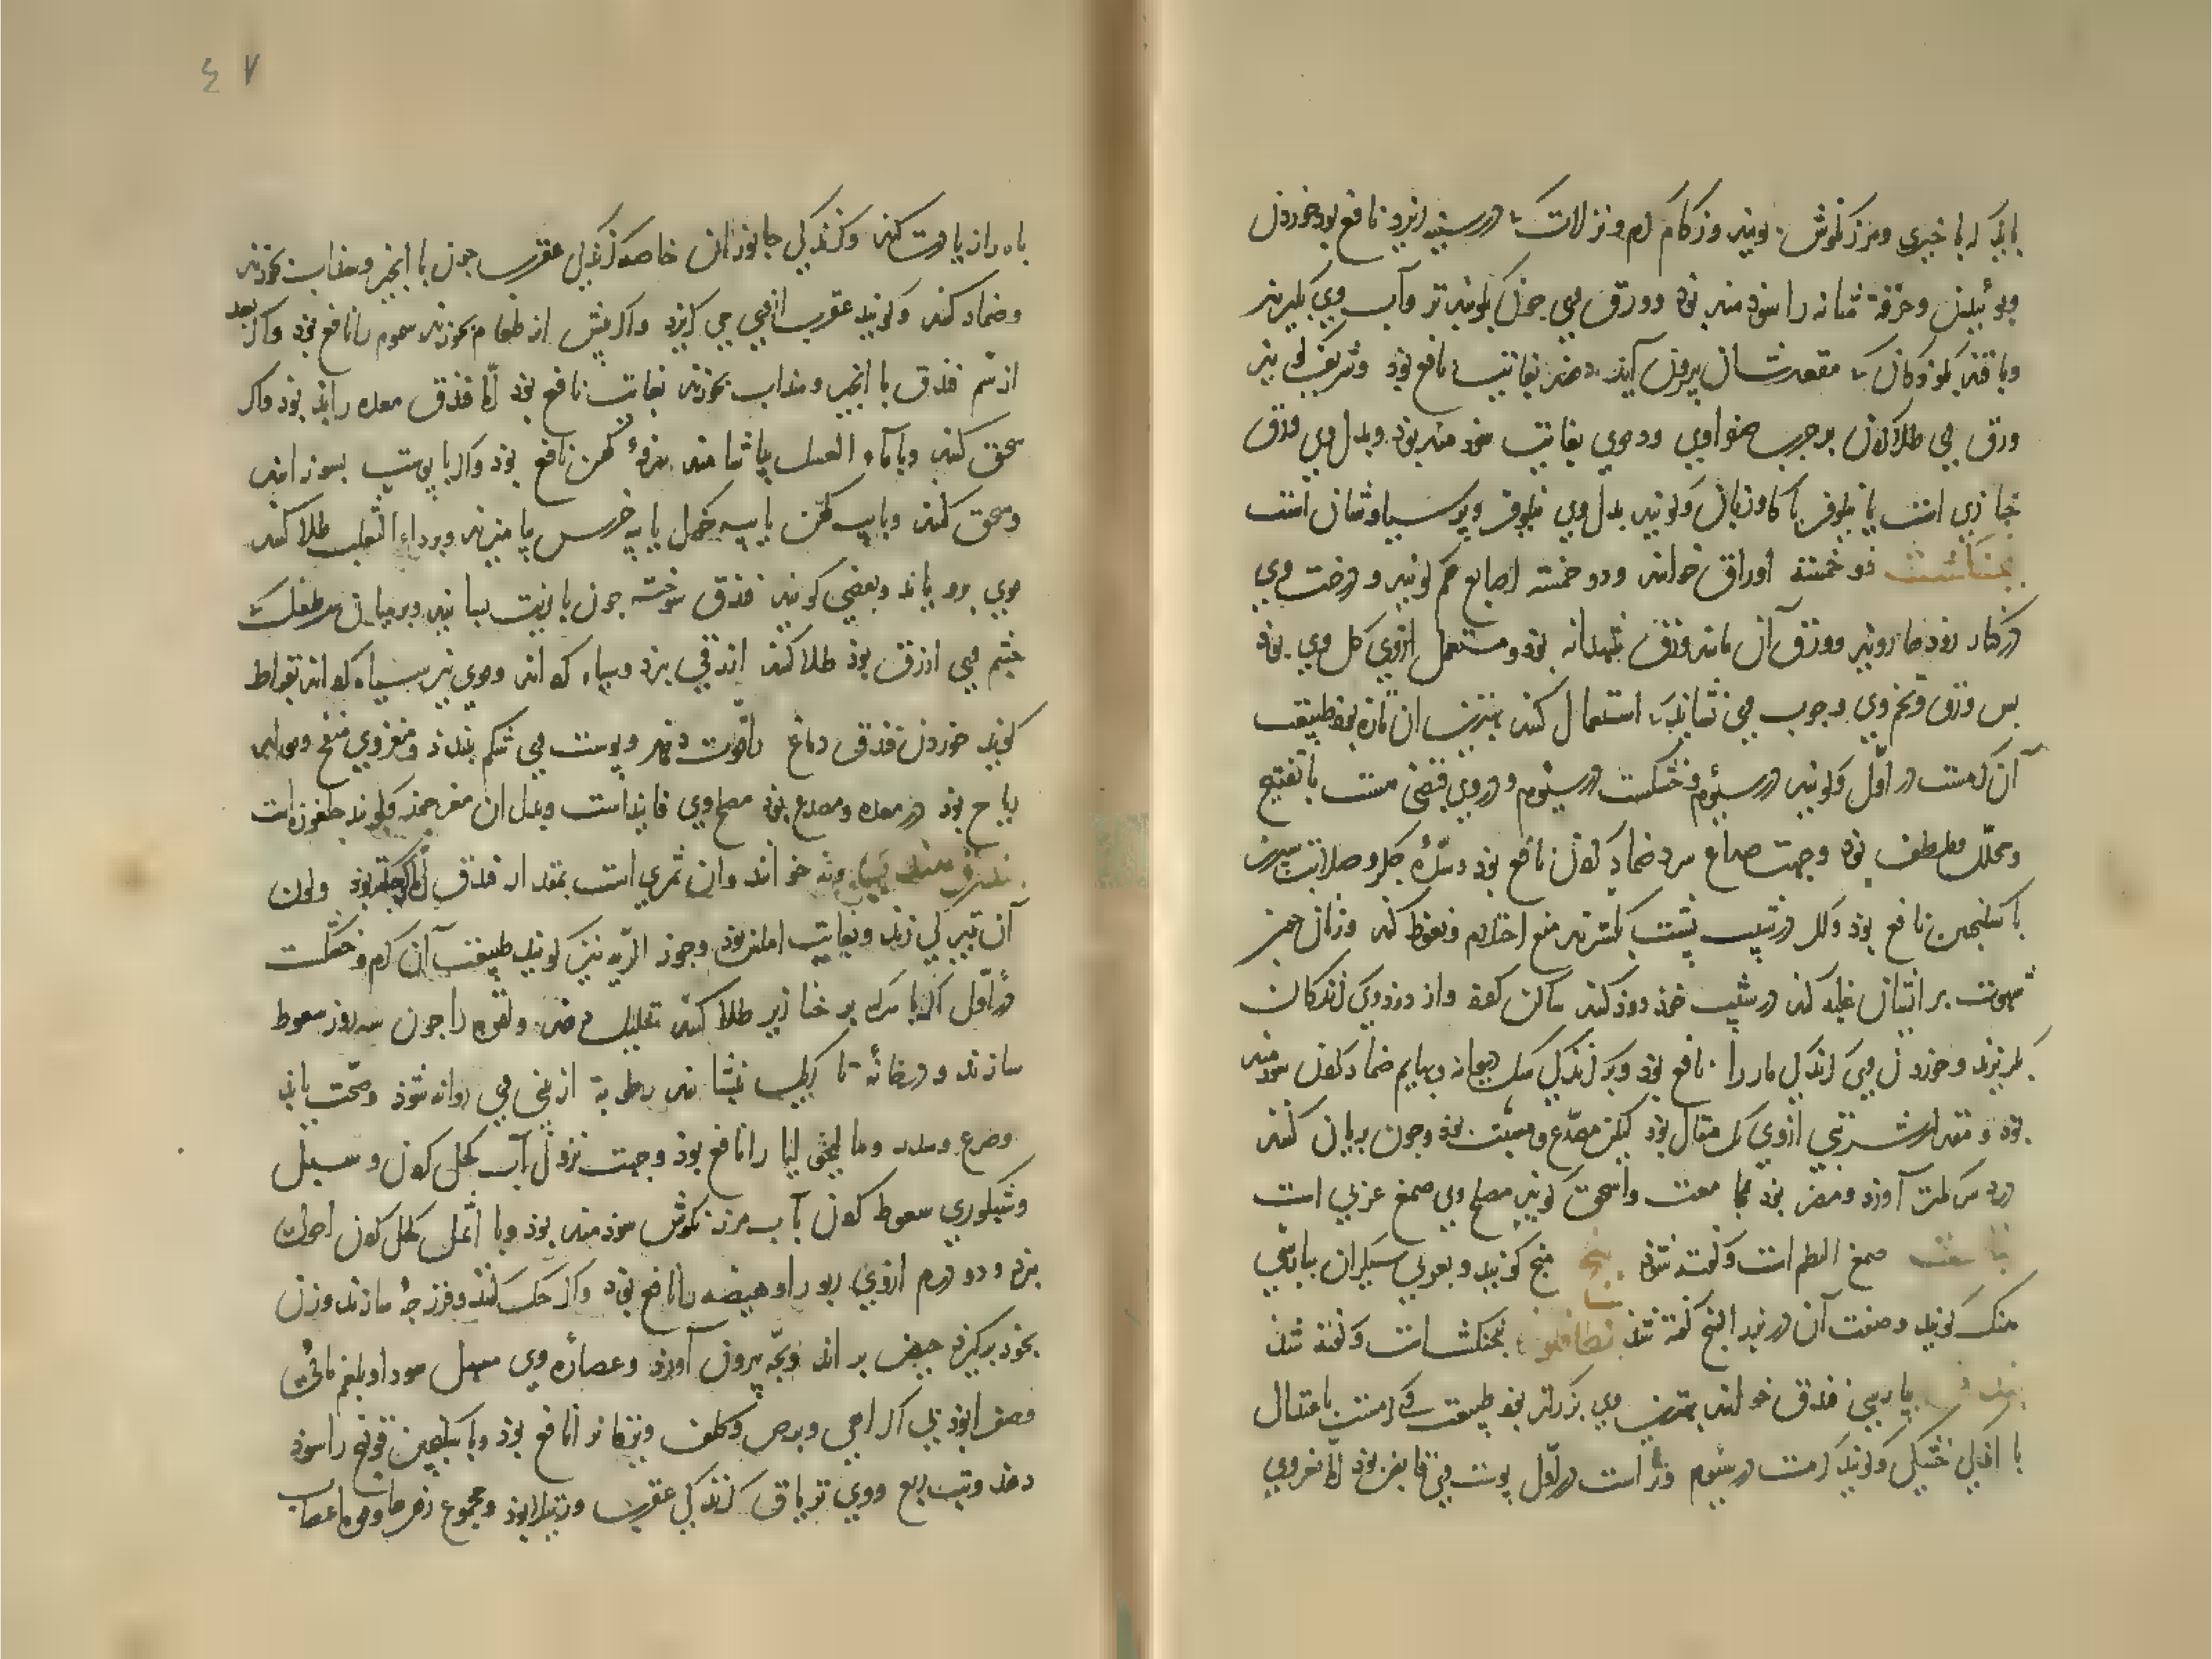 باید که با خیری و مرزنکوش بویند و زکام کرم و نزلات که در سینه ریزد نافع بود خوردن
وبوئیدن وحرقة مثانه را سودمند بود وورق وی چون بکوبند تر وآب وی بکیرند
وبا قند بکوذکان که مقعدشان بیرون آید دهند بغایت نافع بود
ورق وی طلا کردن بر جرب صفراوی ودموی بغایت سودمند بود وبدل وی ورق
خبازی است یا نیلوفر یا کاوزبان وکویند بدل وی نیلوفر وپرسیاوشان است
بنجنکشت ذو خمسة اوراق خوانند وذو خمسة اصابع هم کویند و درخت وی
در کنار رودها روید وورق آن مانند ورق شهدانه بود ومستعمل ازوی کل وی بود
پس ورق وتخم وی وچوب وی نشاید که استعمال کنند بهترین آن تازه بود طبیعت
آن کرمست در اول وکویند در سیوم وخشکست در سیوم ودروی قبضی هست با تفتیح
ومحلل وملطف بود وجهت صداع سرد ضماد کردن نافع بود وسدّه جکر وصلابت سپرز
با سکنجبین نافع بود واکر در شیب پشت بکسترند منع احتلام ونعوظ کند وزنان چون
شهوت بر ایشان غلبه کند در شیب خود دود کنند ساکن کردد واز دود وی کزندکان
بکریزند وخوردن وی کزندکی مار را نافع بود وبر کزندکی سک دیوانه وبهایم ضماد کردن سودمند
بود و مقدار شربتی ازوی یک مثقال بود لیکن مصدّع ومسبّت بود وچون بریان کنند
درد سر کمتر آورد ومضر بود واسحق کوید مصلح وی صمغ عربی است
صمغ البطم است وکفته شود بنج منج کویند وبعربی سیکران بپارسی
منک کویند وصفت آن در بزر البنج کفته شد بنطافلون بنجنکشت است وکفته شد
بندق بپارسی فندق خوانند بهترین وی بزرکتر بود طبیعت وی کرمست باعتدال
با اندکی خشکی وکویند کرمست در سیوم وتر است در اول پوست وی قابض بود اما مغز وی
٤٧
باه را زیادت کند وکزندکی جانوران خاصه کزندکی عقرب چون با انجیر وسداب بخورند
وضماد کنند وکویند عقرب از وی می کریزد واکر پیش از طعام بخورند سموم را نافع بود واکر بعد
از سم فندق با انجیر وسداب بخورند بغایت نافع بود امّا فندق معده را بد بود واکر
سحق کنند وبا ماء العسل بیاشامند سرفهٔ کهن نافع بود واکر با پوست بسوزانند
وسحق کنند وبا پیه کهن یا پیه خوک یا پیه خرس بیامیزند وبر داء الثعلب طلا کنند
موی برویاند وبعضی کویند فندق سوخته چون با زیت بسایند وبر میان سر طفلی که
چشم وی ازرق بود طلا کنند ازرقی ببرد وسیاه کرداند وموی نیز سیاه کرداند بقراط
کوید خوردن فندق دماغ را قوت دهد وپوست وی شکم ببندد ومغز وی منفخ ومولد
ریاح بود در معده ومصدع بود مصلح وی فانید است وبدل آن مغز جوز وکویند جلغوزه است
بندق هندی رته خوانند وآن ثمری است بمقدار فندق امّا کوچکتر بود ولون
آن بتیرکی زند وبغایت املس بود وجوز الرّته نیز کویند طبیعت آن کرم وخشکست
در اول اکر با سرکه بر خنازیر طلا کنند تحلیل دهد ولقوه را چون سه روز سعوط
سازند و در خانهٔ تاریک بنشانند رطوبة از بینی وی روانه شود وصحّت یابد
وصرع وسدد ومالیخولیا را نافع بود وجهت نزول آب کحل کردن وسبل
وشبکوری سعوط کردن بآب مرزنکوش سودمند بود وبا اثمد کحل کردن احول
ببرد و دو درم ازوی ربو را وهیضه را نافع بود واکر حک کنند وفرزجهٔ سازند وزن
بخود برکیرد حیض براند وبچّه بیرون آورد وعصارهٔ وی مسهل سودا وبلغم
وصفرا بود وبرص وکلف را نافع بود وبا سکنجبین قولنج را سود
دهد وتب ربع ووی تریاق کزندکی عقرب ورتیلا بود ومجموع زهرها